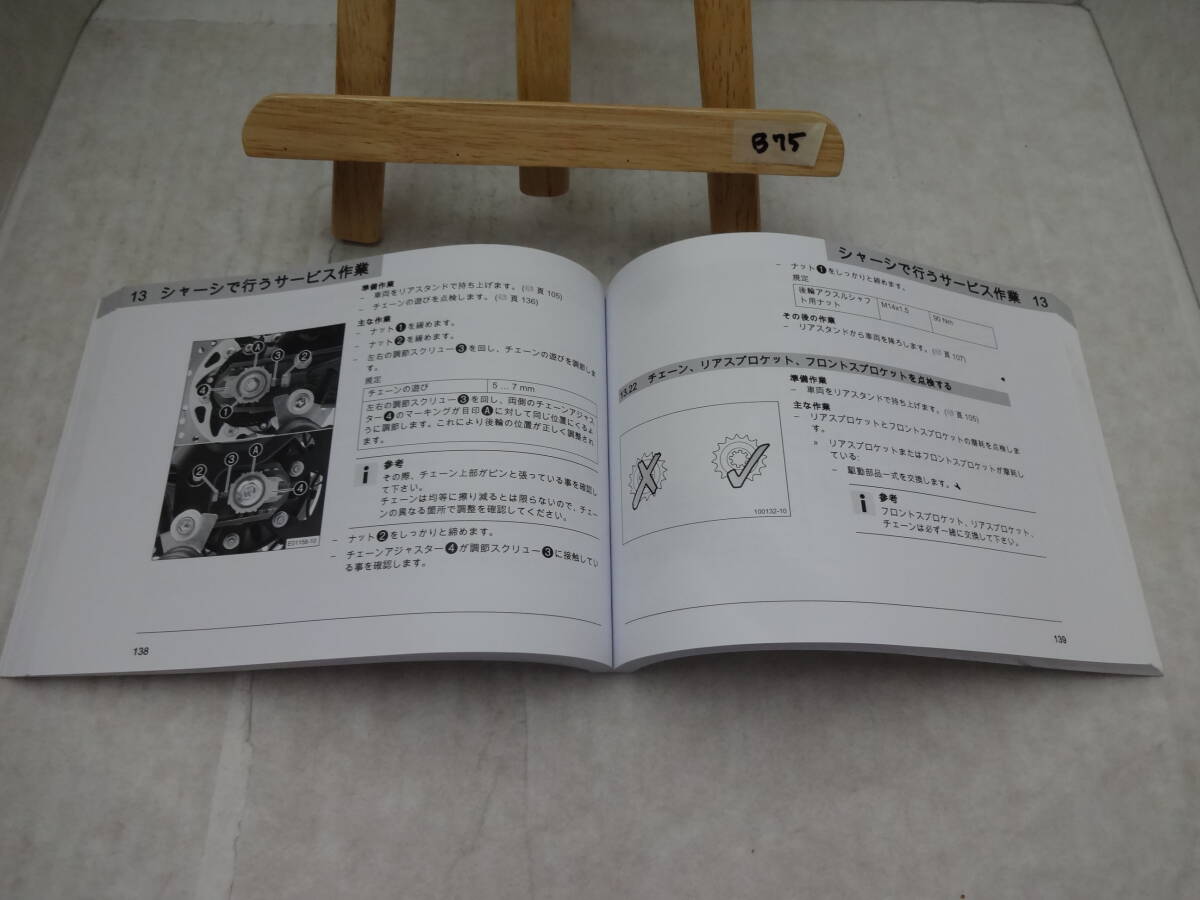 B75
13 シャーシで行うサービス作業
準備作業
– 車両をリアスタンドで持ち上げます。(頁 105)
– チェーンの遊びを点検します。(頁 136)
主な作業
– ナット❶を緩めます。
– ナット❷を緩めます。
– 左右の調節スクリュー❸を回し、チェーンの遊びを調節しま
す。
規定
チェーンの遊び 5 … 7 mm
左右の調節スクリュー❸を回し、両側のチェーンアジャス
ター❹のマーキングが目印Ⓐに対して同じ位置にくるよ
うに調節します。これにより後輪の位置が正しく調整され
ます。
参考
その際、チェーン上部がピンと張っている事を確認し
て下さい。
チェーンは均等に擦り減るとは限らないので、チェー
ンの異なる箇所で調整を確認してください。
– ナット❷をしっかりと締めます。
– チェーンアジャスター❹が調節スクリュー❸に接触してい
る事を確認します。
E01158-10
138
シャーシで行うサービス作業 13
– ナット❶をしっかりと締めます。
規定
後輪アクスルシャフ
ト用ナット M14x1.5 90 Nm
その後の作業
– リアスタンドから車両を降ろします。(頁 107)
13.22 チェーン、リアスプロケット、フロントスプロケットを点検する
準備作業
– 車両をリアスタンドで持ち上げます。(頁 105)
主な作業
– リアスプロケットとフロントスプロケットの磨耗を点検しま
す。
» リアスプロケットまたはフロントスプロケットが磨耗し
ている:
– 駆動部品一式を交換します。
参考
フロントスプロケット、リアスプロケット、
チェーンは必ず一緒に交換して下さい。
100132-10
139